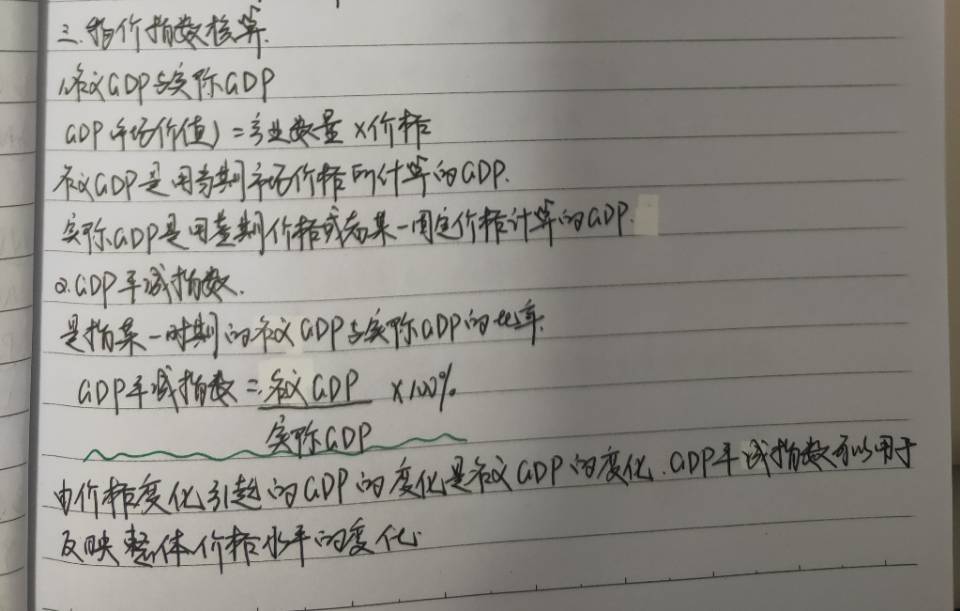 三.物价指数核算.
1.名义GDP与实际GDP
GDP(市场价值)=产业数量×价格
名义GDP是用当期市场价格所计算的GDP.
实际GDP是用基期价格或者某一固定价格计算的GDP.
2.GDP平减指数.
是指某一时期的名义GDP与实际GDP的比率.
GDP平减指数=名义GDP ×100%
实际GDP
由价格变化引起的GDP的变化是名义GDP的变化.GDP平减指数可以用于
反映整体价格水平的变化